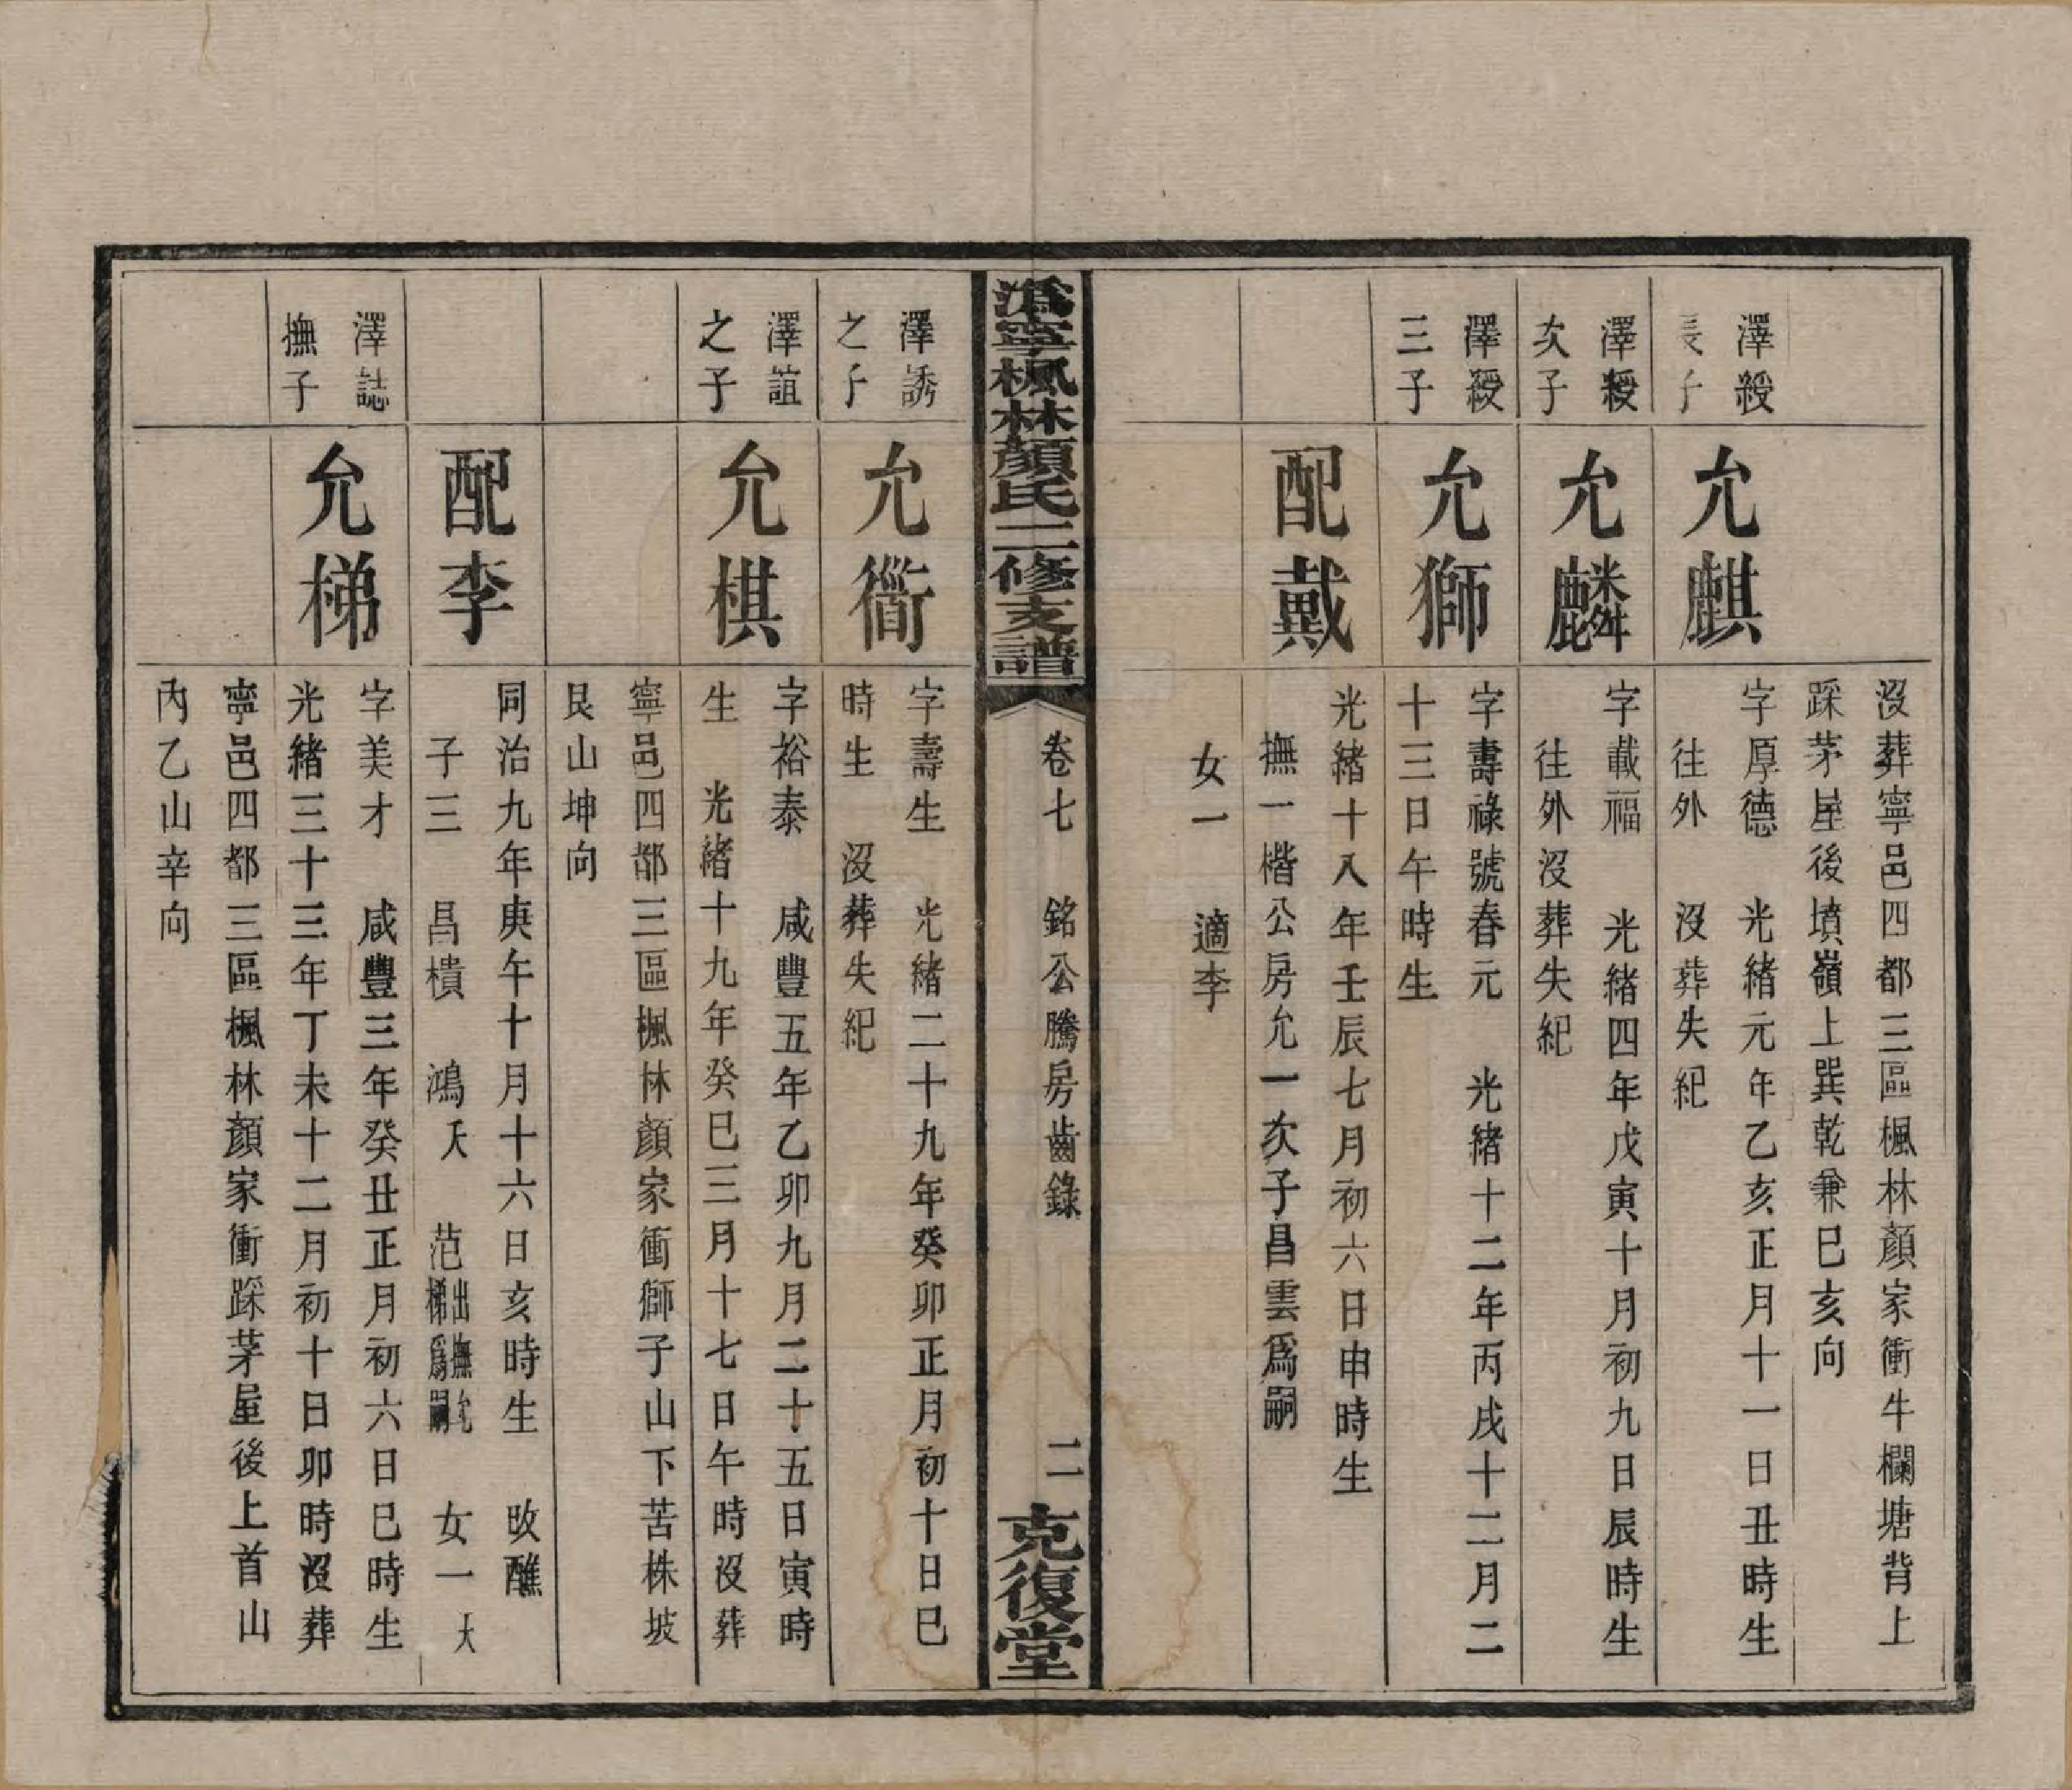 沒葬寧邑四都三區楓林顏家衝牛欄塘背上
踩茅屋後墳嶺上巽乾兼巳亥向
澤綬
長子
允麒
字厚德 光緒元年乙亥正月十一日丑時生
往外 沒葬失紀
澤綬
次子
允麟
字載福 光緒四年戊寅十月初九日辰時生
往外沒葬失紀
澤綬
三子
允獅
字壽祿號春元 光緒十二年丙戌十二月二
十三日午時生
配戴
光緒十八年壬辰七月初六日申時生
撫一楷公房允一次子昌雲爲嗣
女一 適李
溈寧楓林顏氏二修支譜
卷七 銘公騰房齒錄
二
克復堂
澤誘
之子
允衜
字壽生 光緒二十九年癸卯正月初十日巳
時生 沒葬失紀
澤誼
之子
允棋
字裕泰 咸豐五年乙卯九月二十五日寅時
生 光緒十九年癸巳三月十七日午時沒葬
寧邑四都三區楓林顏家衝獅子山下苦株坡
艮山坤向
配李
同治九年庚午十月十六日亥時生 改醮
子三 昌樻 鴻 范出撫允梯爲嗣 女一
澤誌
撫子
允梯
字美才 咸豐三年癸丑正月初六日巳時生
光緒三十三年丁未十二月初十日卯時沒葬
寧邑四都三區楓林顏家衝踩茅屋後上首山
內乙山辛向